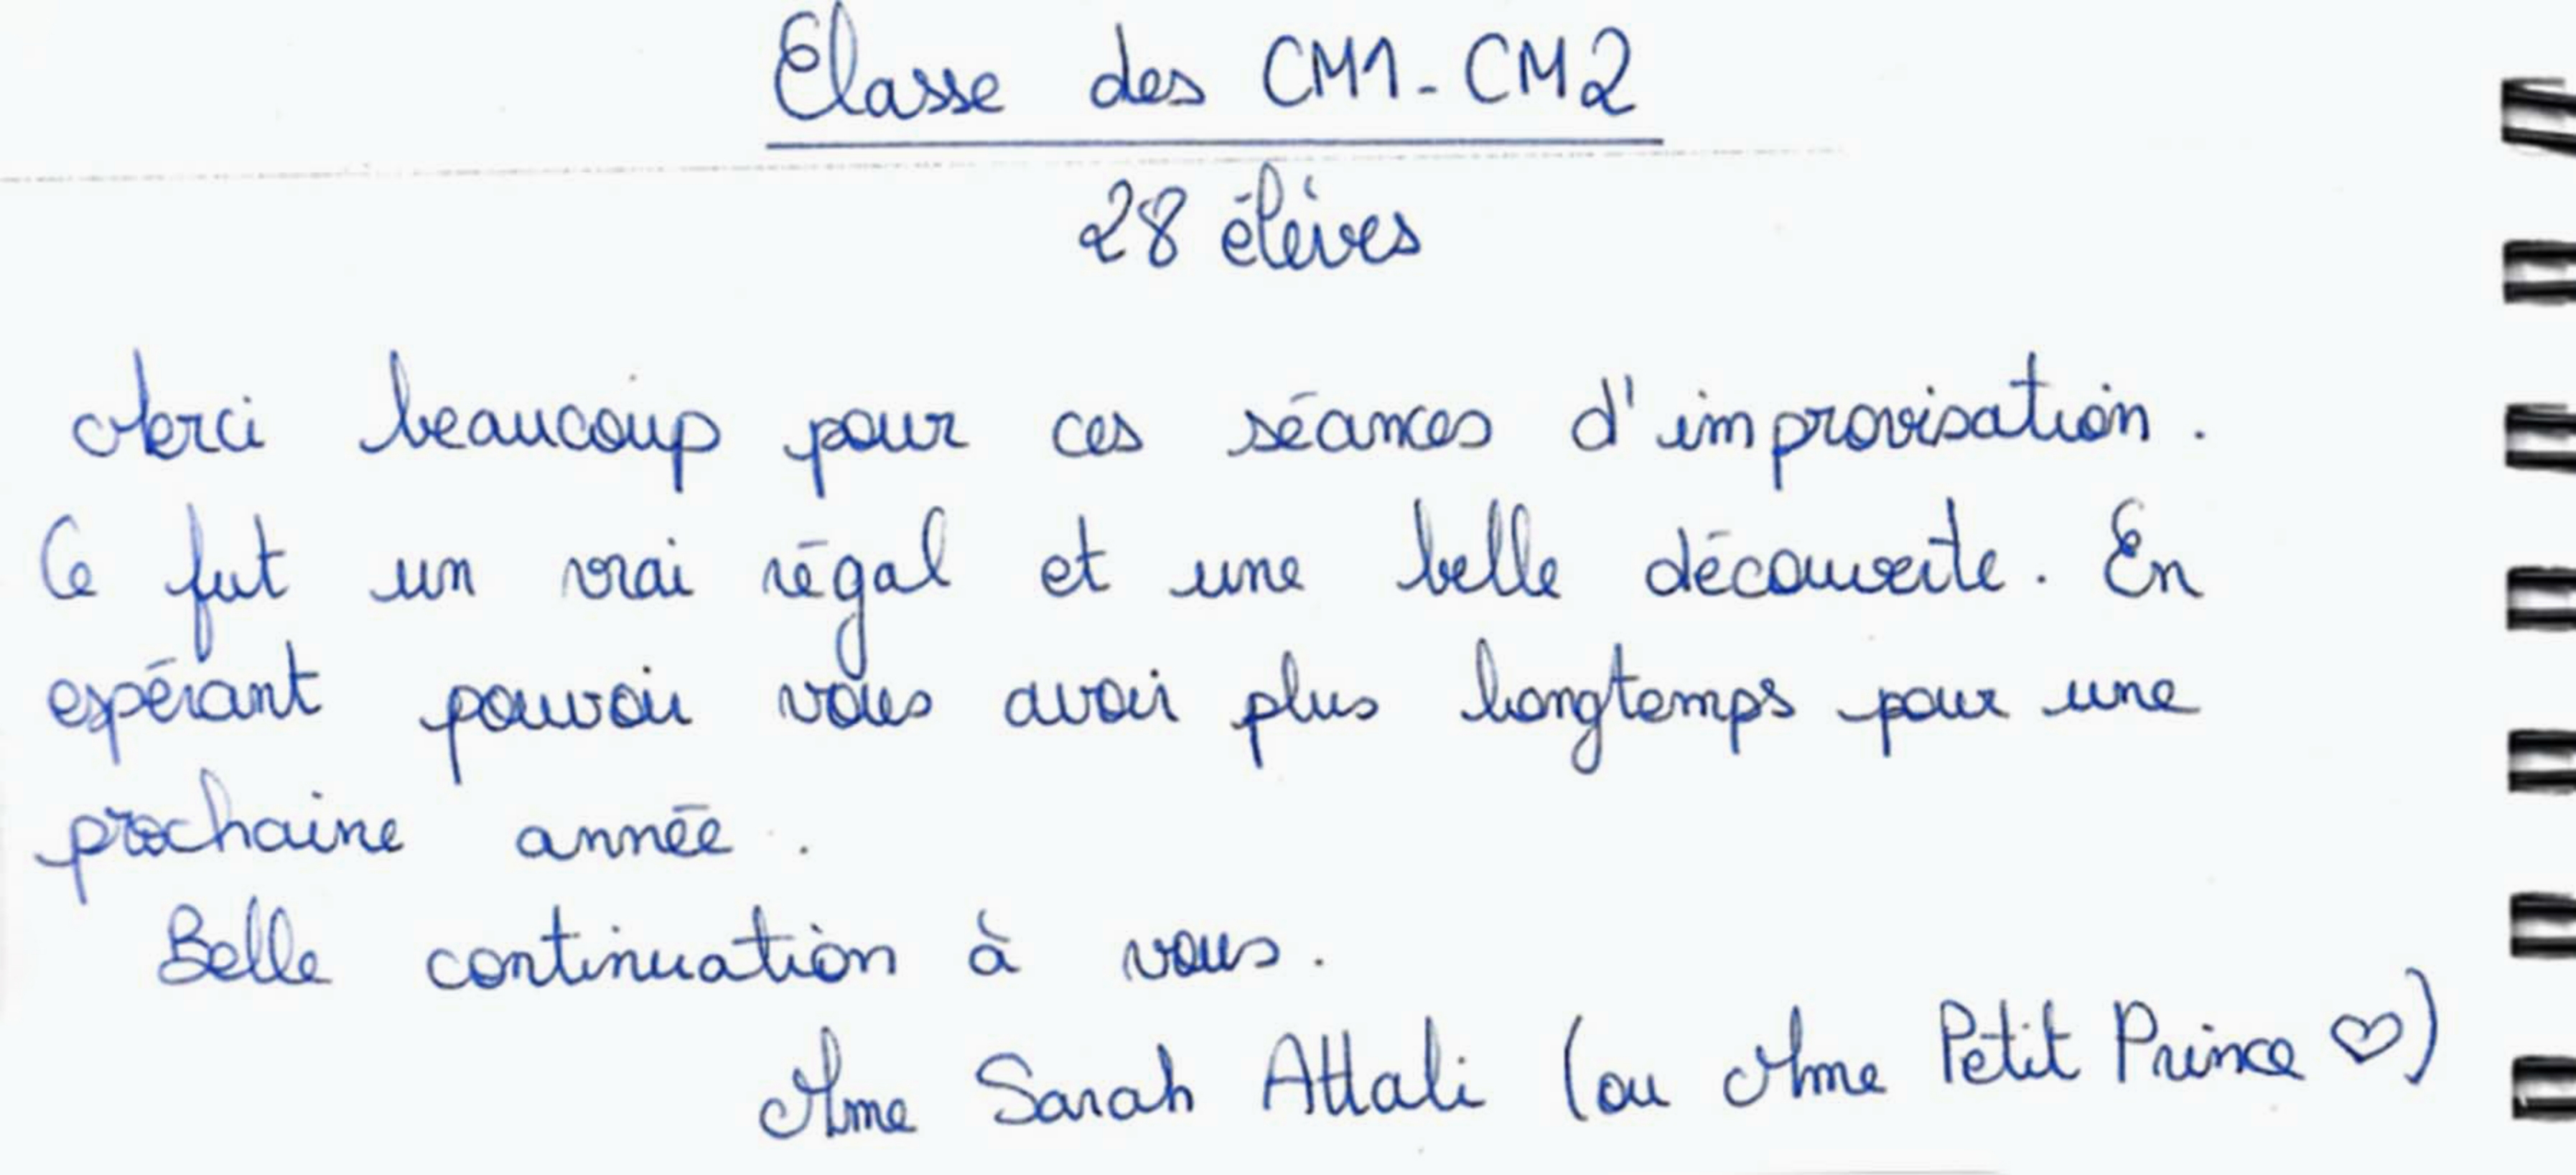 Classe des CM1-CM2
28 élèves
Merci beaucoup pour ces séances d'improvisation.
Ce fut un vrai régal et une belle découverte. En
espérant pouvoir vous avoir plus longtemps pour une
prochaine année.
Belle continuation à vous.
Mme Sarah Attali (ou Mme Petit Prince ♡)